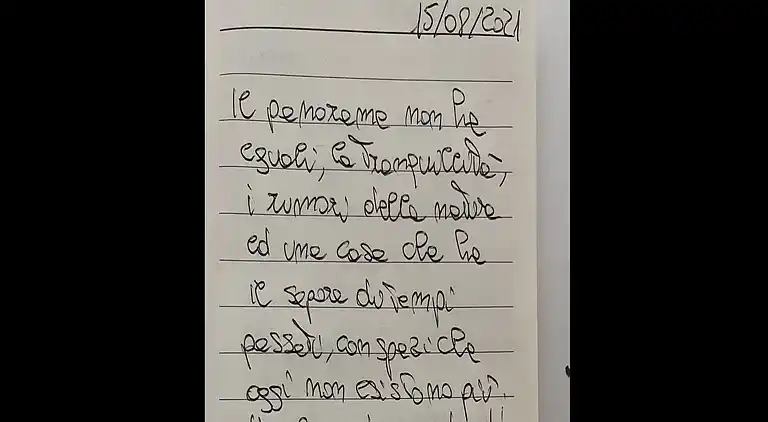 15/08/2021
Il panorama non ha
eguali, la tranquillità,
i rumori della natura
ed una casa che ha
il sapore di tempi
passati, con spazi che
oggi non esistono più.